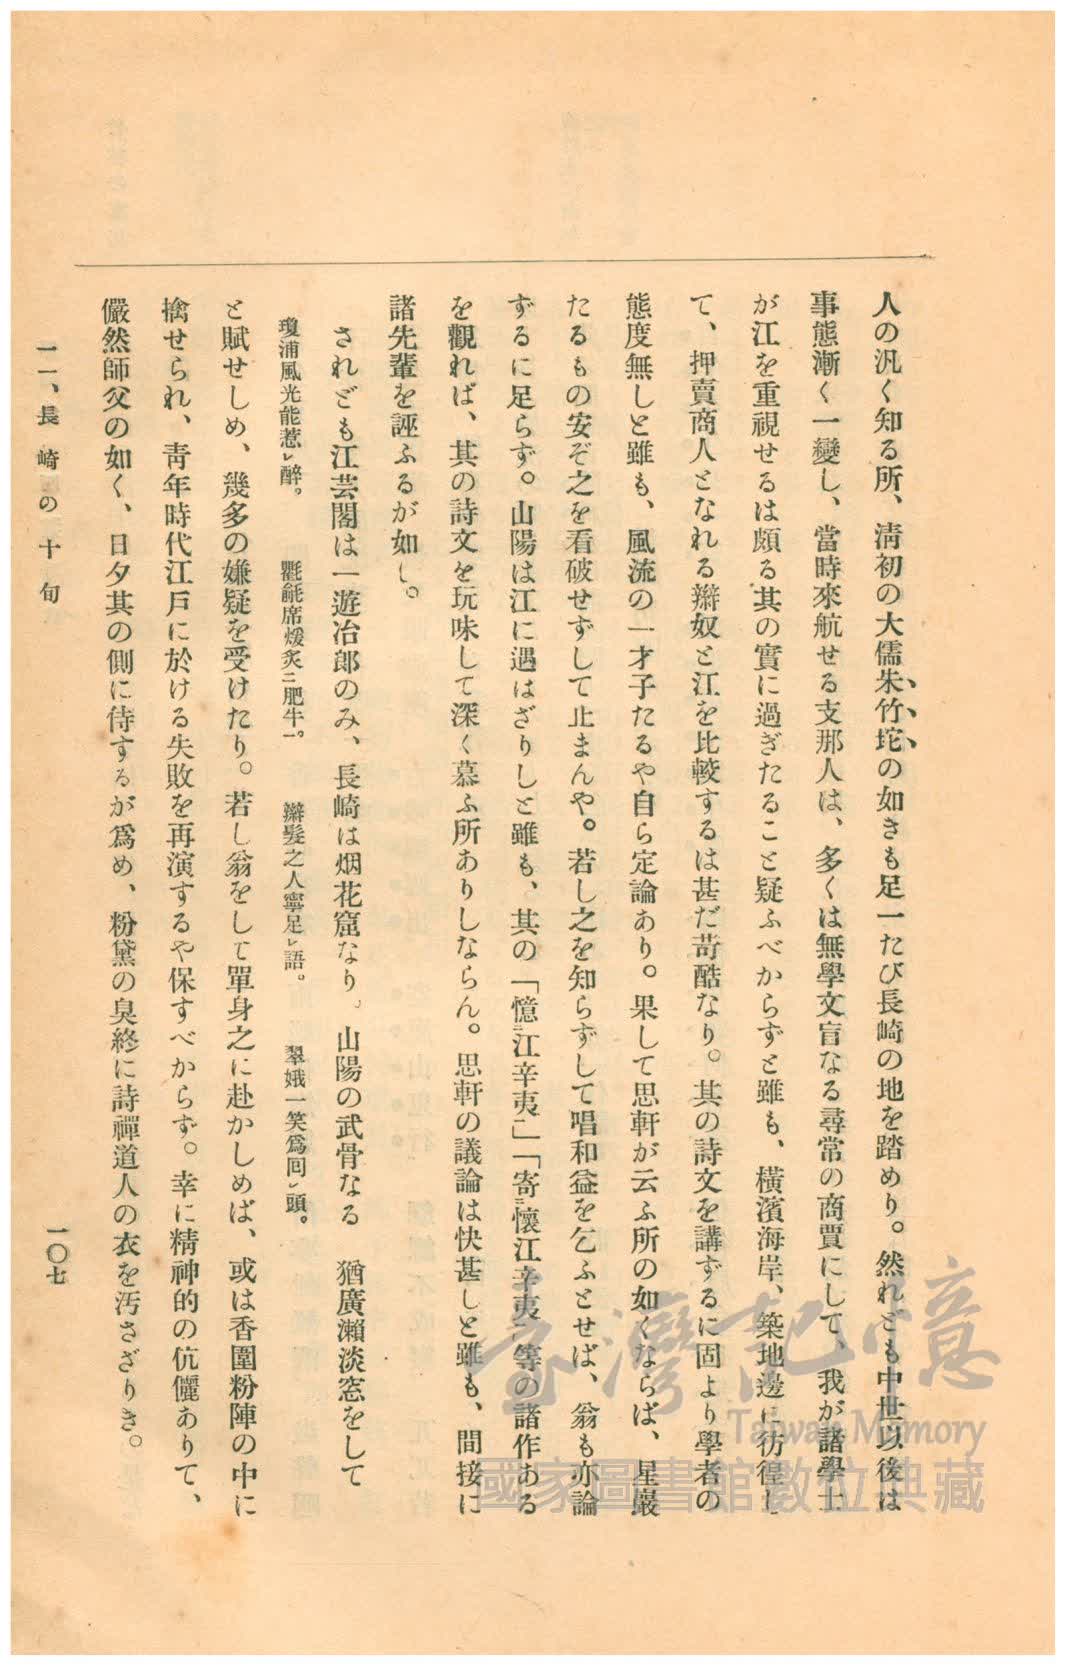 人の汎く知る所、淸初の大儒朱竹垞の如きも足一たび長崎の地を踏めり。然れども中世以後は
事態漸く一變し、當時來航せる支那人は、多くは無學文盲なる尋常の商賈にして、我が諸學士
が江を重視せるは頗る其の實に過ぎたること疑ふべからずと雖も、橫濱海岸、築地邊に彷徨し
て、押賣商人となれる辮奴と江を比較するは甚だ苛酷なり。其の詩文を講ずるに固より學者の
態度無しと雖も、風流の一才子たるや自ら定論あり。果して思軒が云ふ所の如くならば、星巖
たるもの安ぞ之を看破せずして止まんや。若し之を知らずして唱和益を乞ふとせば、翁も亦論
ずるに足らず。山陽は江に遇はざりしと雖も、其の「憶二江辛夷一」「寄二懷江辛夷一」等の諸作ある
を觀れば、其の詩文を玩味して深く慕ふ所ありしならん。思軒の議論は快甚しと雖も、間接に
諸先輩を誣ふるが如し。
されども江芸閣は一遊冶郎のみ、長崎は烟花窟なり、山陽の武骨なる 猶廣瀨淡窓をして
瓊浦風光能惹レ醉。 氍毹席煖炙二肥牛一。 辮髮之人寧足レ語。 翠娥一笑爲回レ頭。
と賦せしめ、幾多の嫌疑を受けたり。若し翁をして單身之に赴かしめば、或は香圍粉陣の中に
擒せられ、靑年時代江戶に於ける失敗を再演するや保すべからず。幸に精神的の伉儷ありて、
儼然師父の如く、日夕其の側に侍するが爲め、粉黛の臭終に詩禪道人の衣を汚さざりき。
一一、長崎の十旬
一〇七
臺灣記憶
Taiwan Memory
國家圖書館數位典藏